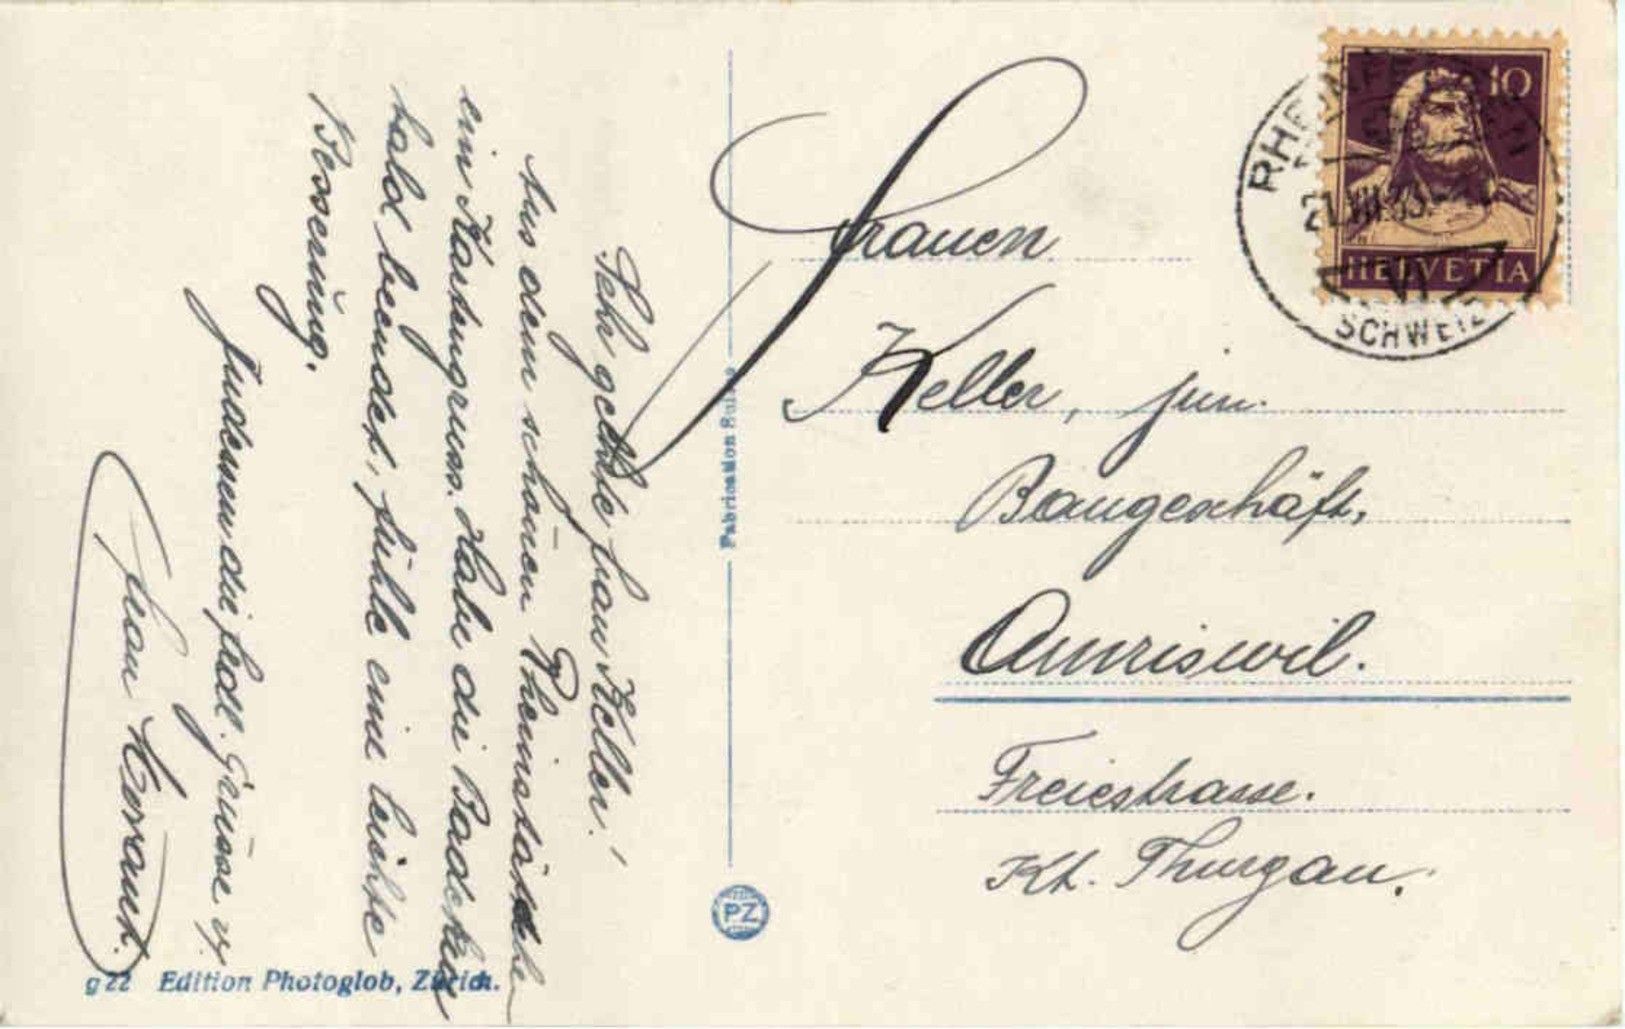 Sehr geehrte Frau Keller!
Aus dem schönen Rheinstädtche
ein Kartengruss. Habe die Badekur
bald beendet, fühle eine leichte
Besserung.
Indessen die frdl. Grüsse v.
Frau
Frauen
Keller, jun.
Baugeschäft,
Amriswil.
Freiestrasse.
Kt. Thurgau.
10
HELVETIA
21.VII.
SCHWEIZ
Fabrication Suisse
PZ
g 22 Edition Photoglob, Zürich.